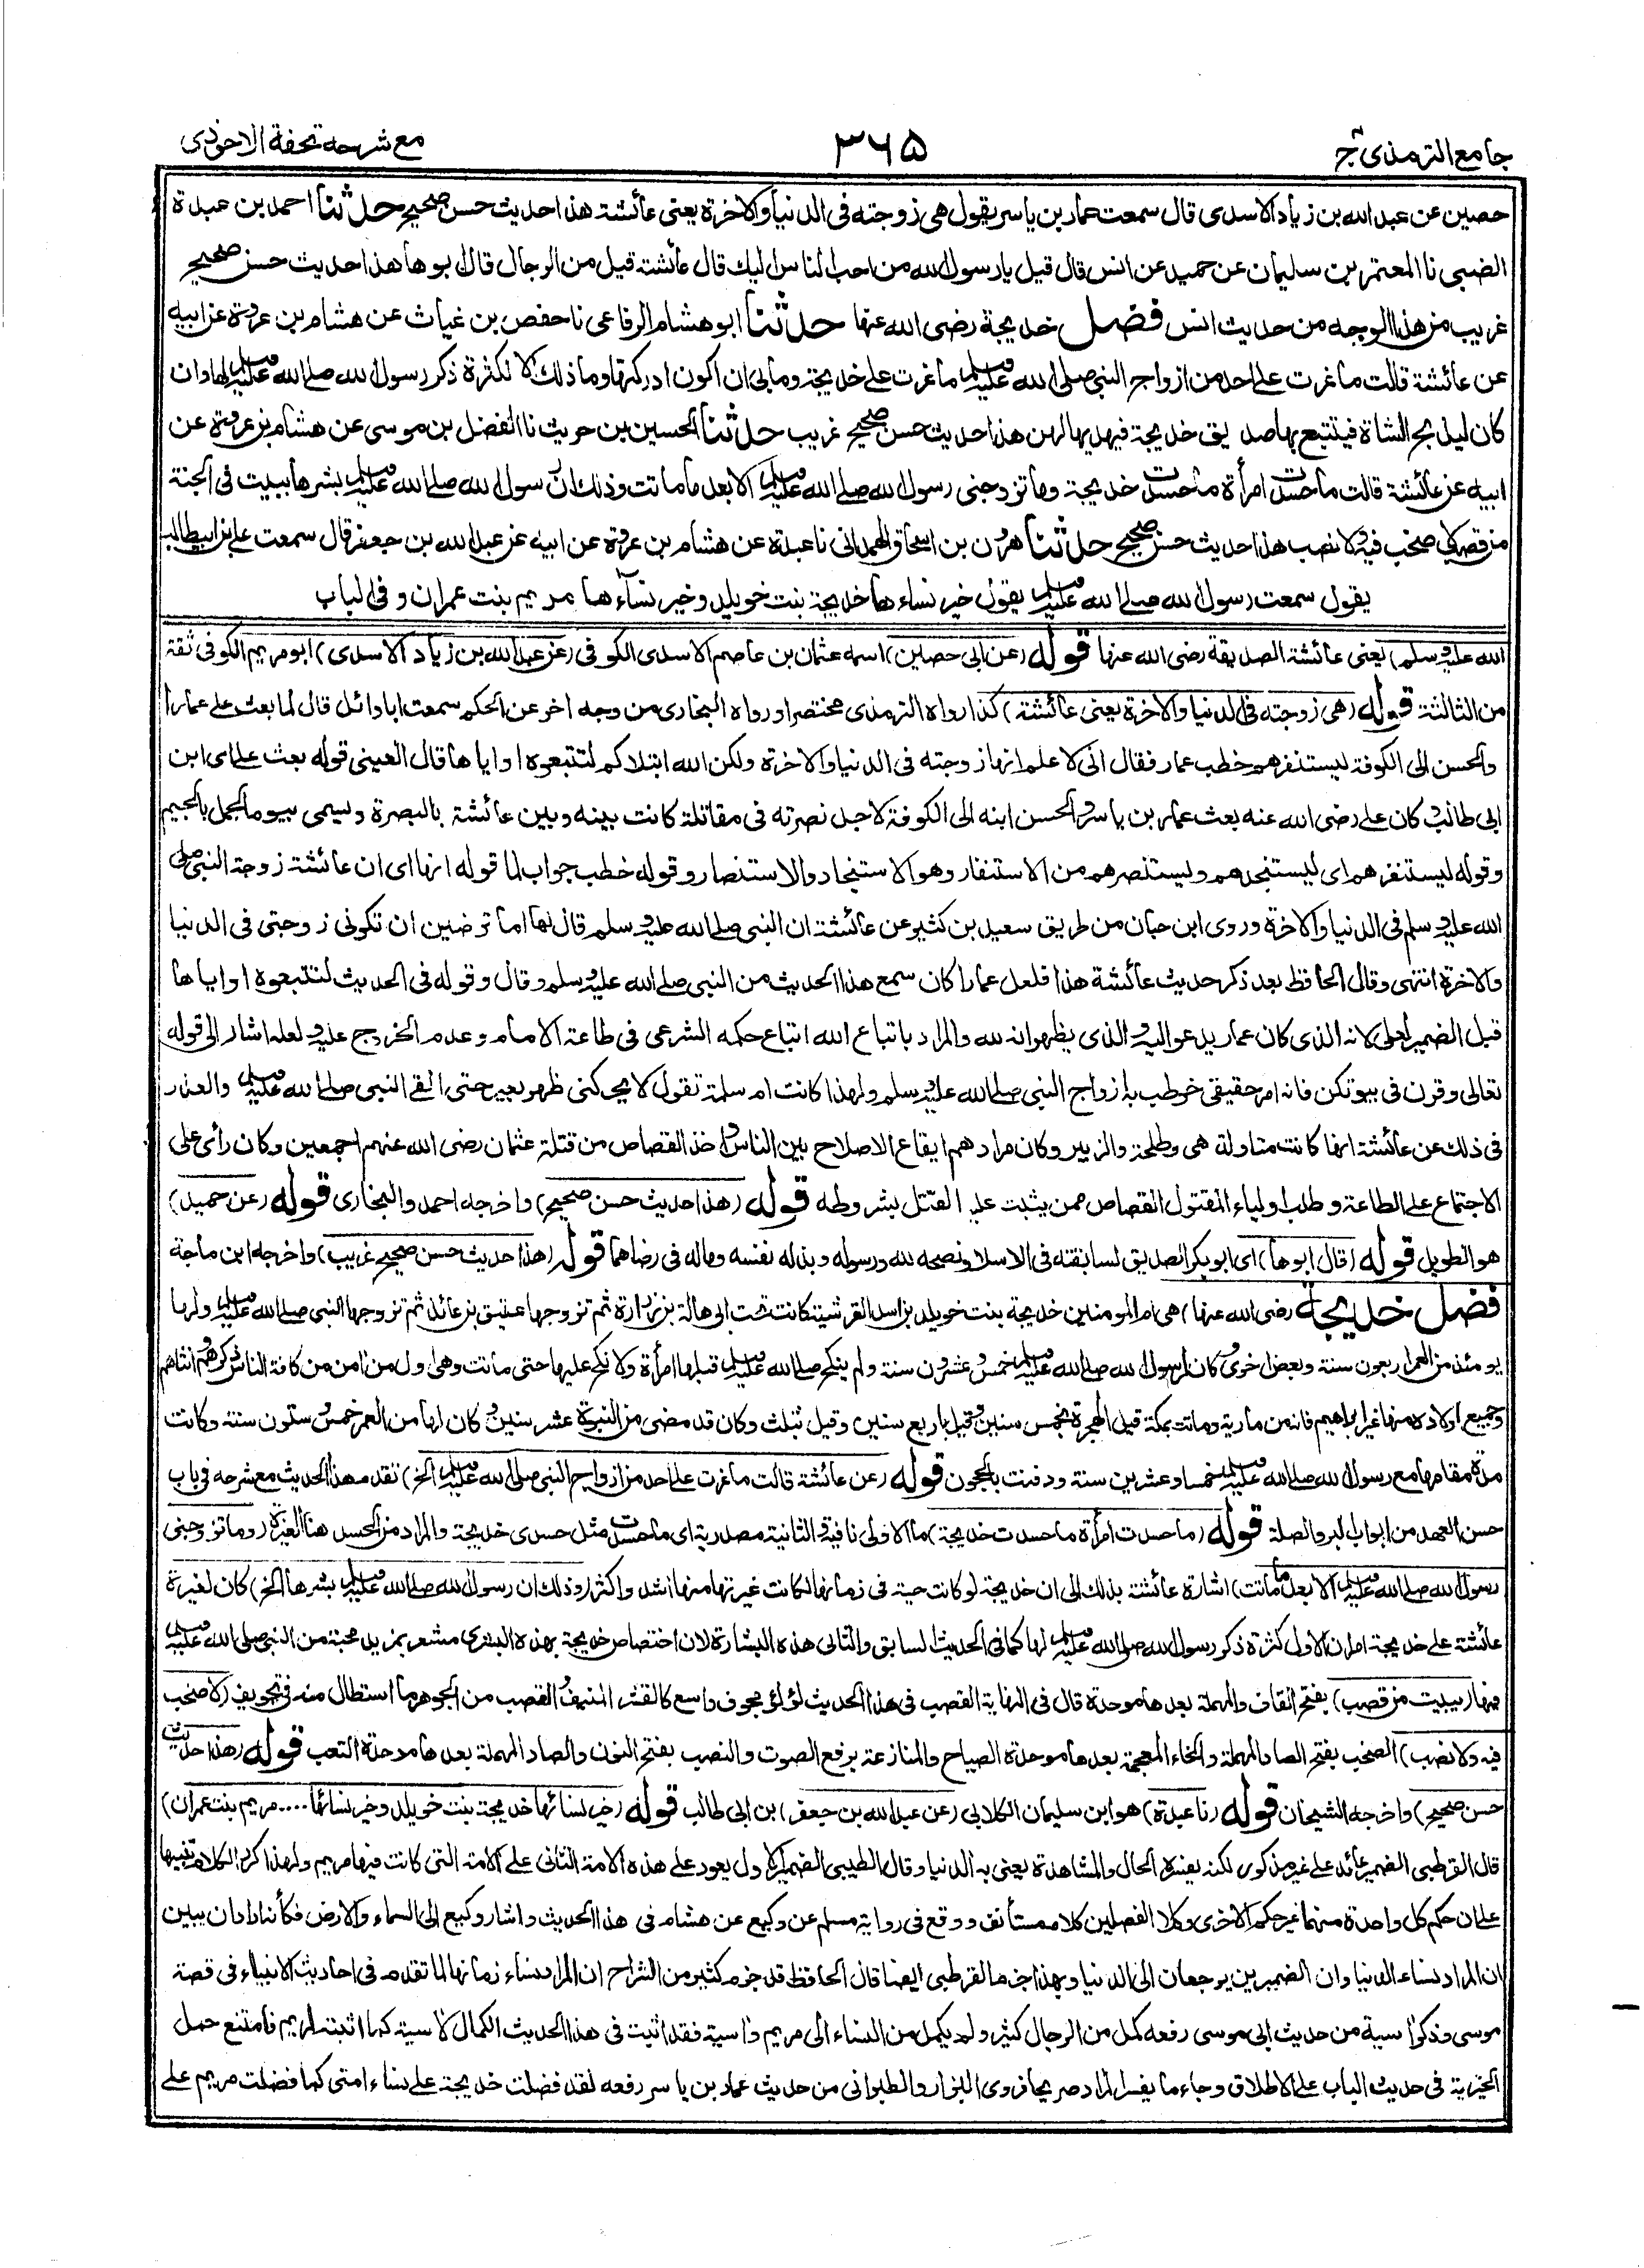 جامع الترمذی ج
۳۶۵
مع شرحه تحفة الاحوذی
حصين عن عبد الله بن زياد الاسدی قال سمعت عمار بن ياسر يقول هی زوجته فی الدنيا والاخرة يعنی عائشة هذا حديث حسن صحيح حدثنا احمد بن عبدة
الضبی نا المعتمر بن سليمان عن حميد عن انس قال قيل يا رسول الله من احب الناس اليك قال عائشة قيل من الرجال قال ابوها هذا حديث حسن صحيح
غريب من هذا الوجه من حديث انس فضل خديجة رضی الله عنها حدثنا ابو هشام الرفاعی نا حفص بن غياث عن هشام بن عروة عن ابيه
عن عائشة قالت ما غرت على احد من ازواج النبی صلى الله عليه وسلم ما غرت على خديجة وما بی ان اكون ادركتها وما ذلك الا لكثرة ذكر رسول الله صلى الله عليه وسلم لها وان
كان ليذبح الشاة فيتتبع بها صدايق خديجة فيهديها لهن هذا حديث حسن صحيح غريب حدثنا الحسين بن حريث نا الفضل بن موسى عن هشام بن عروة عن
ابيه عن عائشة قالت ما حسدت امرأة ما حسدت خديجة وما تزوجنی رسول الله صلى الله عليه وسلم الا بعد ما ماتت وذلك ان رسول الله صلى الله عليه وسلم بشرها ببيت فی الجنة
من قصب لا صخب فيه ولا نصب هذا حديث حسن صحيح حدثنا هرون بن اسحاق الهمدانی نا عبدة عن هشام بن عروة عن ابيه عن عبد الله بن جعفر قال سمعت علی بن ابی طالب
يقول سمعت رسول الله صلى الله عليه وسلم يقول خير نساءها خديجة بنت خويلد وخير نساءها مريم بنت عمران وفی الباب
الله عليه وسلم) يعنی عائشة الصديقة رضی الله عنها قوله (عن ابی حصين) اسمه عثمان بن عاصم الاسدی الكوفی (عن عبد الله بن زياد الاسدی) ابو مريم الكوفی ثقة
من الثالثة قوله (هی زوجته فی الدنيا والاخرة يعنی عائشة) كذا رواه الترمذی مختصرا ورواه البخاری من وجه اخر عن الحكم سمعت ابا وائل قال لما بعث علی عمارا
والحسن الى الكوفة ليستنفرهم خطب عمار فقال انی لاعلم انها زوجته فی الدنيا والاخرة ولكن الله ابتلاكم لتتبعوه او اياها قال العينی قوله بعث علی ای ابن
ابی طالب وكان علی رضی الله عنه بعث عمار بن ياسر والحسن ابنه الى الكوفة لاجل نصرته فی مقاتلة كانت بينه وبين عائشة بالبصرة ويسمى بيوم الجمل بالجيم
وقوله ليستنفرهم ای ليستنجدهم وليستنصرهم من الاستنفار وهو الاستنجاد والاستنصار وقوله خطب جواب لما قوله انها ای ان عائشة زوجة النبی صلى
الله عليه وسلم فی الدنيا والاخرة وروى ابن حبان من طريق سعيد بن كثير عن عائشة ان النبی صلى الله عليه وسلم قال لها اما ترضين ان تكونی زوجتی فی الدنيا
والاخرة انتهى وقال الحافظ بعد ذكر حديث عائشة هذا فلعل عمارا كان سمع هذا الحديث من النبی صلى الله عليه وسلم وقال وقوله فی الحديث لتتبعوه او اياها
قيل الضمير لعلی لانه الذی كان عمار يدعو اليه والذی يظهر انه لله والمراد باتباع الله اتباع حكمه الشرعی فی طاعة الامام وعدم الخروج عليه ولعله اشار الى قوله
تعالى وقرن فی بيوتكن فانه امر حقيقی خوطب به ازواج النبی صلى الله عليه وسلم ولهذا كانت ام سلمة تقول لا يحركنی ظهر بعير حتى القى النبی صلى الله عليه وسلم والعذر
فی ذلك عن عائشة انها كانت متاولة هی وطلحة والزبير وكان مرادهم ايقاع الاصلاح بين الناس واخذ القصاص من قتلة عثمان رضی الله عنهم اجمعين وكان رأی علی
الاجتماع على الطاعة وطلب اولياء المقتول القصاص ممن يثبت عليه القتل بشروطه قوله (هذا حديث حسن صحيح) واخرجه احمد والبخاری قوله (عن حميد)
هو الطويل قوله (قال ابوها) ای ابو بكر الصديق لسابقته فی الاسلام ونصحه لله ورسوله وبذله نفسه وماله فی رضاهما قوله (هذا حديث حسن صحيح غريب) واخرجه ابن ماجة
فضل خديجة رضی الله عنها) هی ام المومنين خديجة بنت خويلد بن اسد القرشية كانت تحت ابی هالة بن زرارة ثم تزوجها عتيق بن عائذ ثم تزوجها النبی صلى الله عليه وسلم ولها
يومئذ من العمر اربعون سنة وبعض اخرى وكان لرسول الله صلى الله عليه وسلم خمس وعشرون سنة ولم ينكح صلى الله عليه وسلم قبلها امرأة ولا نكح عليها حتى ماتت وهی اول من امن من كافة الناس ذكرهم وانثاهم
وجميع اولاده منها غير ابراهيم فانه من مارية وماتت بمكة قبل الهجرة بخمس سنين وقيل باربع سنين وقيل بثلث وكان قد مضى من النبوة عشر سنين وكان لها من العمر خمس وستون سنة وكانت
مدة مقامها مع رسول الله صلى الله عليه وسلم خمسا وعشرين سنة ودفنت بالحجون قوله (عن عائشة قالت ما غرت على احد من ازواج النبی صلى الله عليه وسلم الخ) تقدم هذا الحديث مع شرحه فی باب
حسن العهد من ابواب البر والصلة قوله (ما حسدت امرأة ما حسدت خديجة) ما الاولى نافية والثانية مصدرية ای ما حسدت مثل حسدی خديجة والمراد من الحسد هنا الغيرة (وما تزوجنی
رسول الله صلى الله عليه وسلم الا بعد ما ماتت) اشارة عائشة بذلك الى ان خديجة لو كانت حية فی زمانها لكانت غيرتها منها اشد واكثر (وذلك ان رسول الله صلى الله عليه وسلم بشرها الخ) كان لغيرة
عائشة على خديجة امران الاول كثرة ذكر رسول الله صلى الله عليه وسلم لها كما فی الحديث السابق والثانی هذه البشارة لان اختصاص خديجة بهذه البشرى مشعر بمزيد محبة من النبی صلى الله عليه وسلم
فيها (ببيت من قصب) بفتح القاف والمهملة بعدها موحدة قال فی النهاية القصب فی هذا الحديث لؤلؤ مجوف واسع كالقصر المنيف والقصب من الجوهر ما استطال منه فی تجويف (لا صخب
فيه ولا نصب) الصخب بفتح الصاد المهملة والخاء المعجمة بعدها موحدة الصياح والمنازعة برفع الصوت والنصب بفتح النون والصاد المهملة بعدها موحدة التعب قوله (هذا حديث
حسن صحيح) واخرجه الشيخان قوله (نا عبدة) هو ابن سليمان الكلابی (عن عبد الله بن جعفر) بن ابی طالب قوله (خير نسائها خديجة بنت خويلد وخير نسائها .... مريم بنت عمران)
قال القرطبی الضمير عائد على غير مذكور لكنه يفسره الحال والمشاهدة يعنی به الدنيا وقال الطيبی الضمير الاول يعود على هذه الامة والثانی على الامة التی كانت فيها مريم ولهذا كرر الكلام تنبيها
على ان حكم كل واحدة منهما غير حكم الاخرى وكلا الفصلين كلام مستأنف ووقع فی رواية مسلم عن وكيع عن هشام فی هذا الحديث واشار وكيع الى السماء والارض فكأنه اراد ان يبين
ان المراد نساء الدنيا وان الضميرين يرجعان الى الدنيا وبهذا جزم القرطبی ايضا قال الحافظ قد جزم كثير من الشراح ان المراد نساء زمانها لما تقدم فی احاديث الانبياء فی قصة
موسى وذكر اسية من حديث ابی موسى رفعه كمل من الرجال كثير ولم يكمل من النساء الا مريم واسية فقد اثبت فی هذا الحديث الكمال لاسية كما اثبته لمريم فامتنع حمل
الخيرية فی حديث الباب على الاطلاق وجاء ما يفسر المراد صريحا فروى البزار والطبرانی من حديث عمار بن ياسر رفعه لقد فضلت خديجة على نساء امتی كما فضلت مريم على